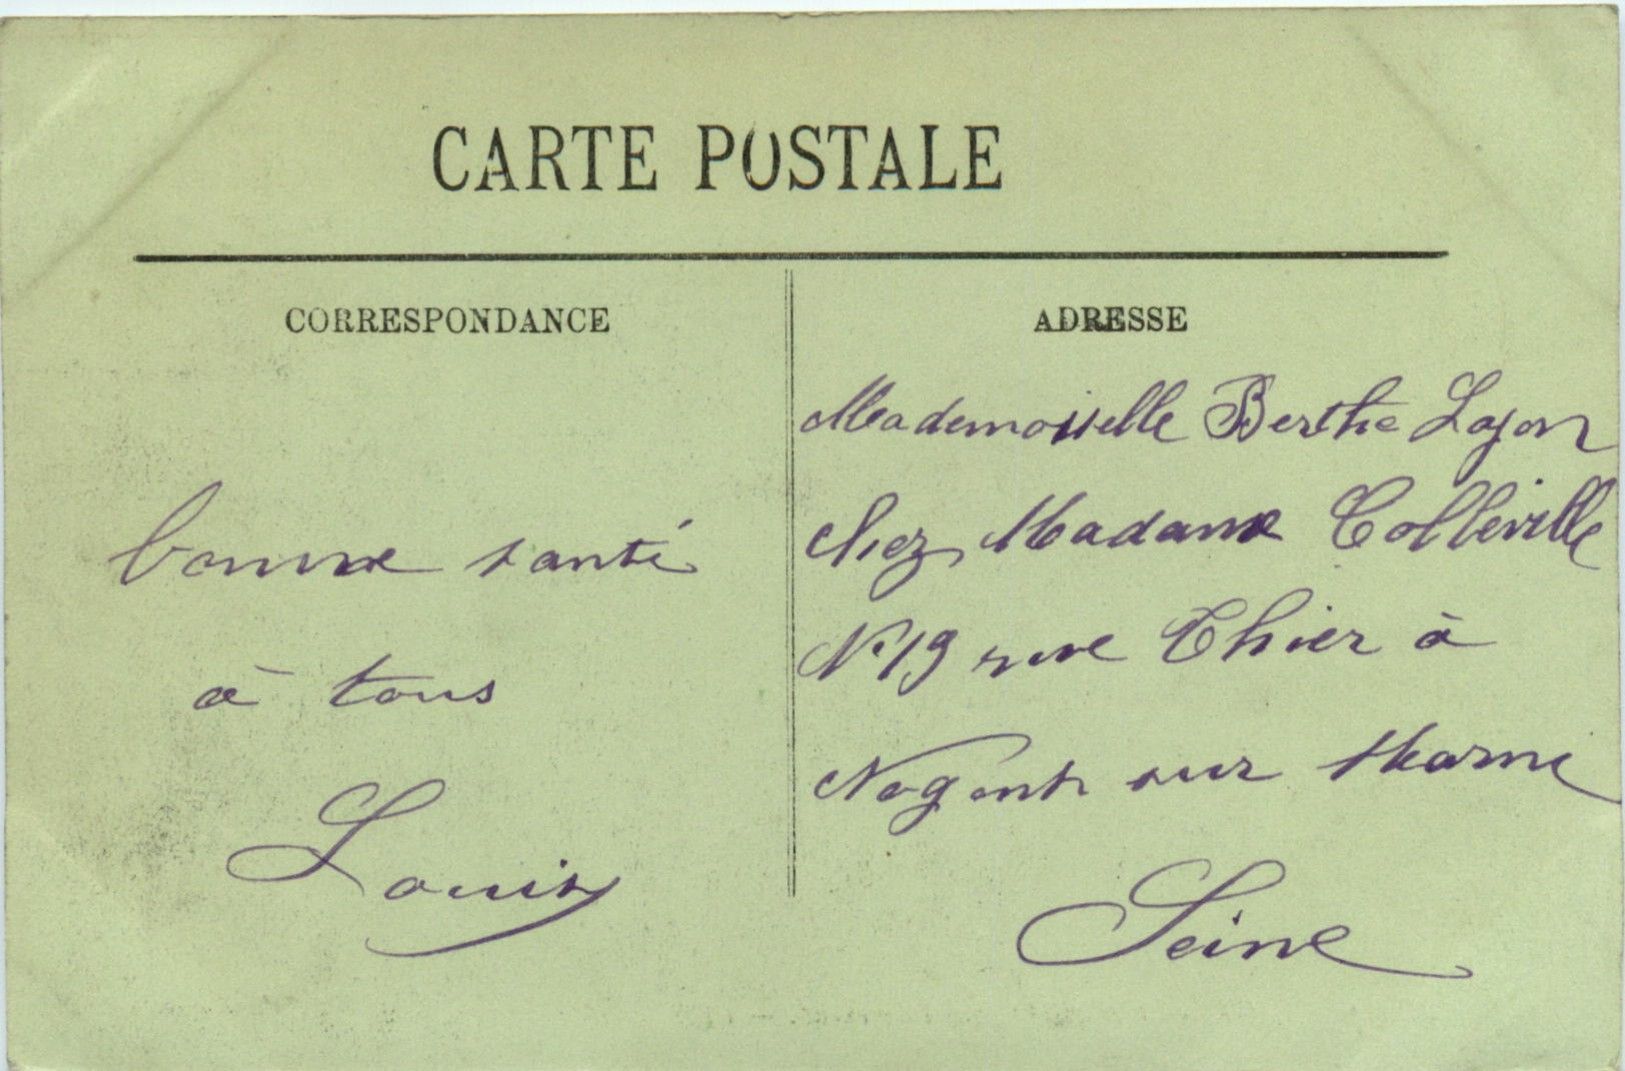 CARTE POSTALE
CORRESPONDANCE
bonne santé
à tous
Louis
ADRESSE
Mademoiselle Berthe Lajon
chez Madame Colleville
N°19 rue Thier à
Nogent sur Marne
Seine